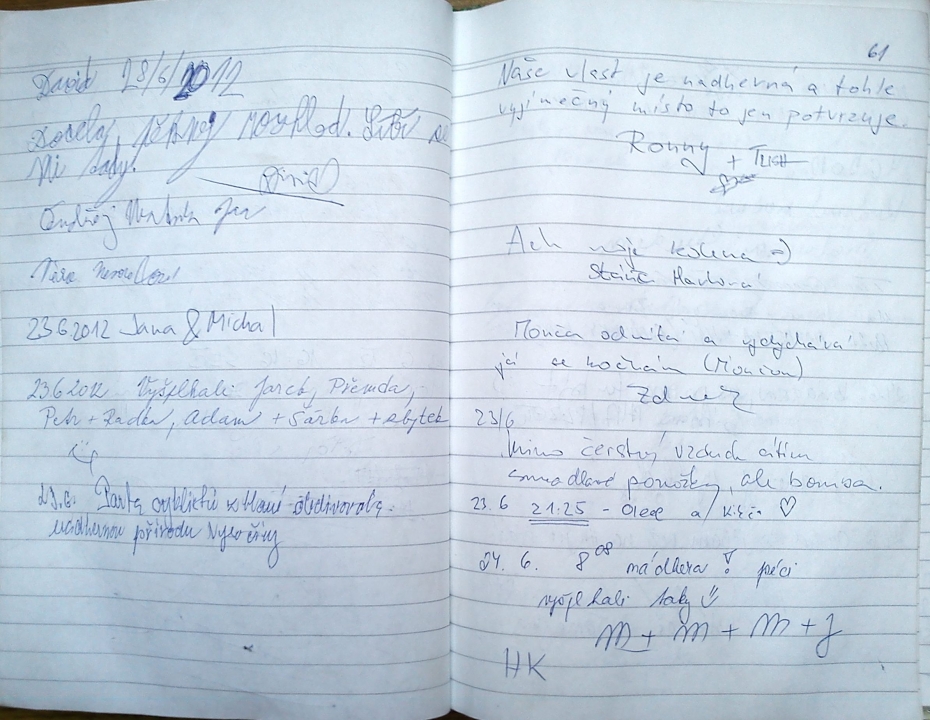 David 28/6/2012
Docela, pěkný rozhled. Líbí se
Mi tady.
David
Ondřej
23.6.2012 Jana & Michal
23.6.2012 Vyšplhali: Jarek, Přemda,
Petr + Radka, Adam + Šárka + zbytek
23.6. Parta cyklistů z Hané obdivovala
nádhernou přírodu Vysočiny
61
Naše vlast je nádherná a tohle
vyjímečný místo to jen potvrzuje.
Ronny + TRISH
Ach moje kolena :-)
Monča odmítá a vydýchává
já se kochám (Mončou)
Zdnek
23/6
Mimo čerstvý vzduch cítím
smradlavé ponožky, ale
23.6 21:25 - a ♡
24. 6. 8⁰⁸ nádhera!
vyšplhali taky
M + M + M + J
HK